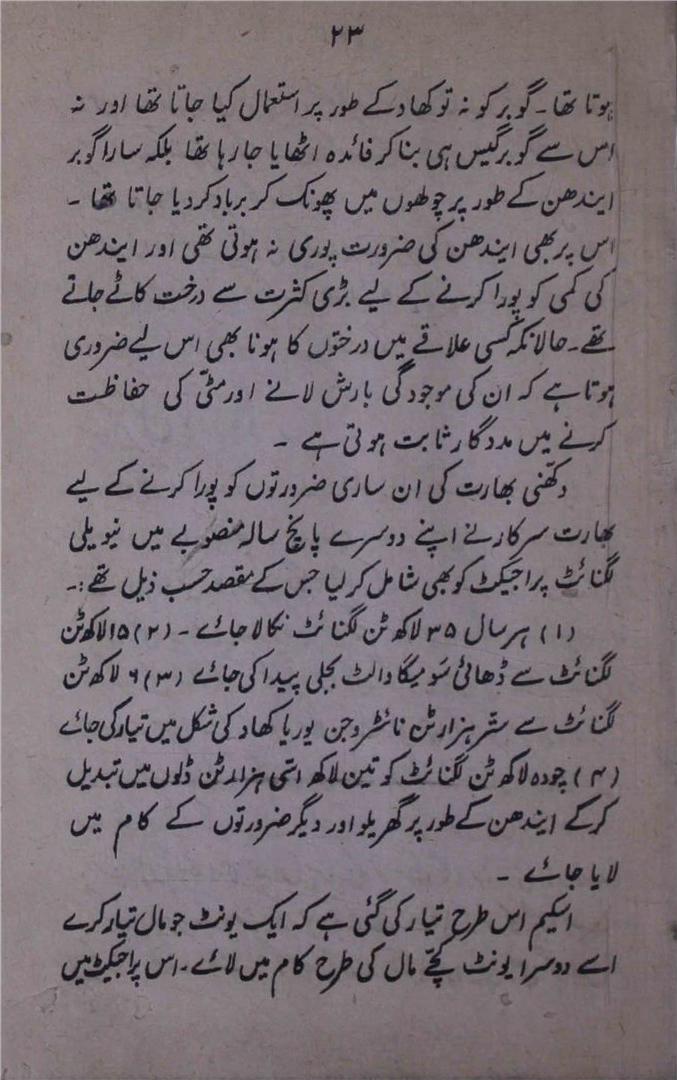 ۲۳
ہوتا تھا۔ گوبر کو نہ تو کھاد کے طور پر استعمال کیا جاتا تھا اور نہ
اس سے گوبر گیس ہی بنا کر فائدہ اٹھایا جا رہا تھا بلکہ سارا گوبر
ایندھن کے طور پر چولھوں میں پھونک کر برباد کر دیا جاتا تھا ۔
اس پر بھی ایندھن کی ضرورت پوری نہ ہوتی تھی اور ایندھن
کی کمی کو پورا کرنے کے لیے بڑی کثرت سے درخت کاٹے جاتے
تھے۔ حالانکہ کسی علاقے میں درختوں کا ہونا بھی اس لیے ضروری
ہوتا ہے کہ ان کی موجودگی بارش لانے اور مٹّی کی حفاظت
کرنے میں مددگار ثابت ہوتی ہے ۔
دکھّنی بھارت کی ان ساری ضرورتوں کو پورا کرنے کے لیے
بھارت سرکار نے اپنے دوسرے پانچ سالہ منصوبے میں نیویلی
لگنائٹ پراجیکٹ کو بھی شامل کر لیا جس کے مقصد حسب ذیل تھے :۔
(۱) ہر سال ۳۵ لاکھ ٹن لگنائٹ نکالا جائے ۔ (۲) ۱۵ لاکھ ٹن
لگنائٹ سے ڈھائی سَو میگا والٹ بجلی پیدا کی جائے (۳) ۶ لاکھ ٹن
لگنائٹ سے ستّر ہزار ٹن نائٹروجن یوریا کھاد کی شکل میں تیار کی جائے
(۴) چودہ لاکھ ٹن لگنائٹ کو تین لاکھ اسّی ہزار ٹن ڈلوں میں تبدیل
کرکے ایندھن کے طور پر گھریلو اور دیگر ضرورتوں کے کام میں
لایا جائے ۔
اسکیم اس طرح تیار کی گئی ہے کہ ایک یونٹ جو مال تیار کرے
اسے دوسرا یونٹ کچّے مال کی طرح کام میں لائے۔ اس پراجیکٹ میں